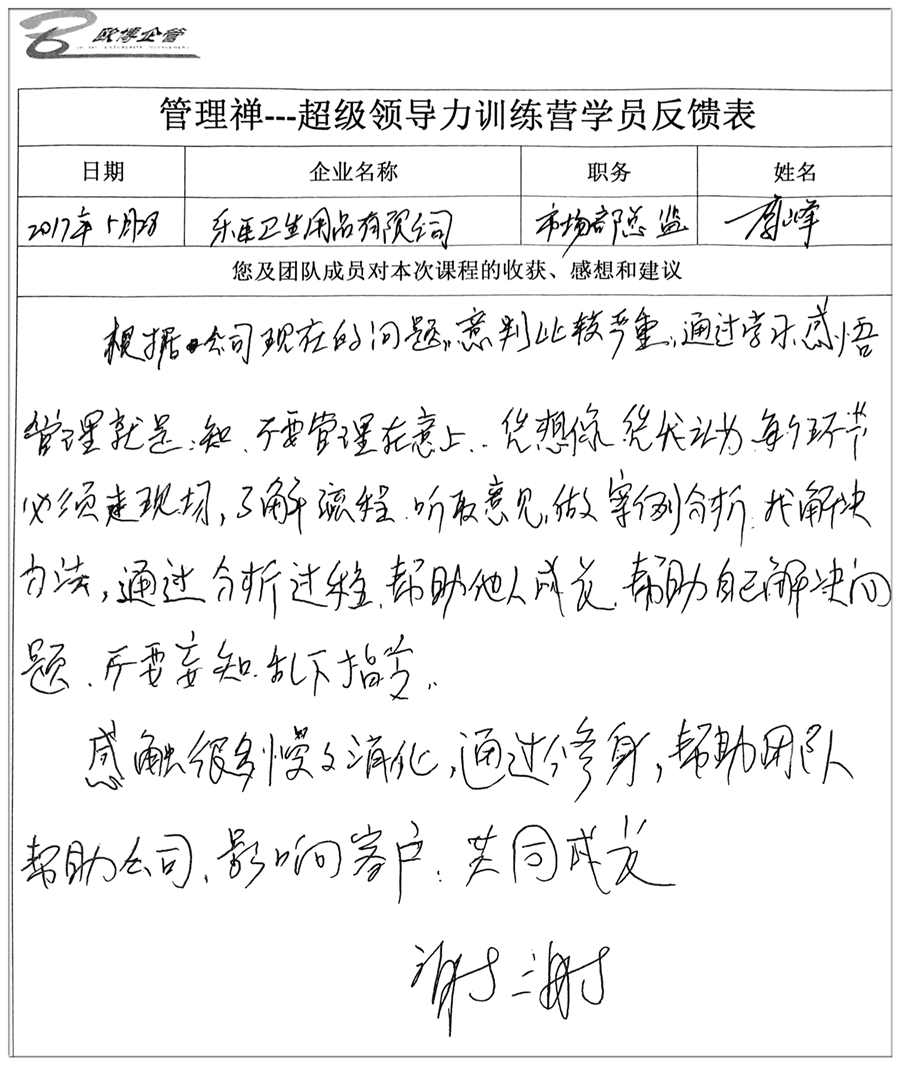 欧博企管
管理禅---超级领导力训练营学员反馈表
日期 企业名称 职务 姓名
2017年5月28 乐 卫生用品有限公司 市场部总监 李峰
您及团队成员对本次课程的收获、感想和建议
根据公司现在的问题,意判比较严重,通过学习感悟
管理就是:知、不要管理在意上、 我认为每个环节
必须走现场,了解流程、听取意见,做案例分析、找解决
办法,通过分析过程、帮助他人成长、帮助自己解决问
题、不要妄知、乱下指令。
感触很多慢々消化,通过修身,帮助团队
帮助公司、影响客户、共同成长
谢谢